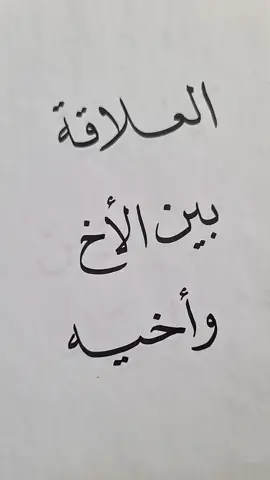 العلاقة
بين الأخ
وأخيه